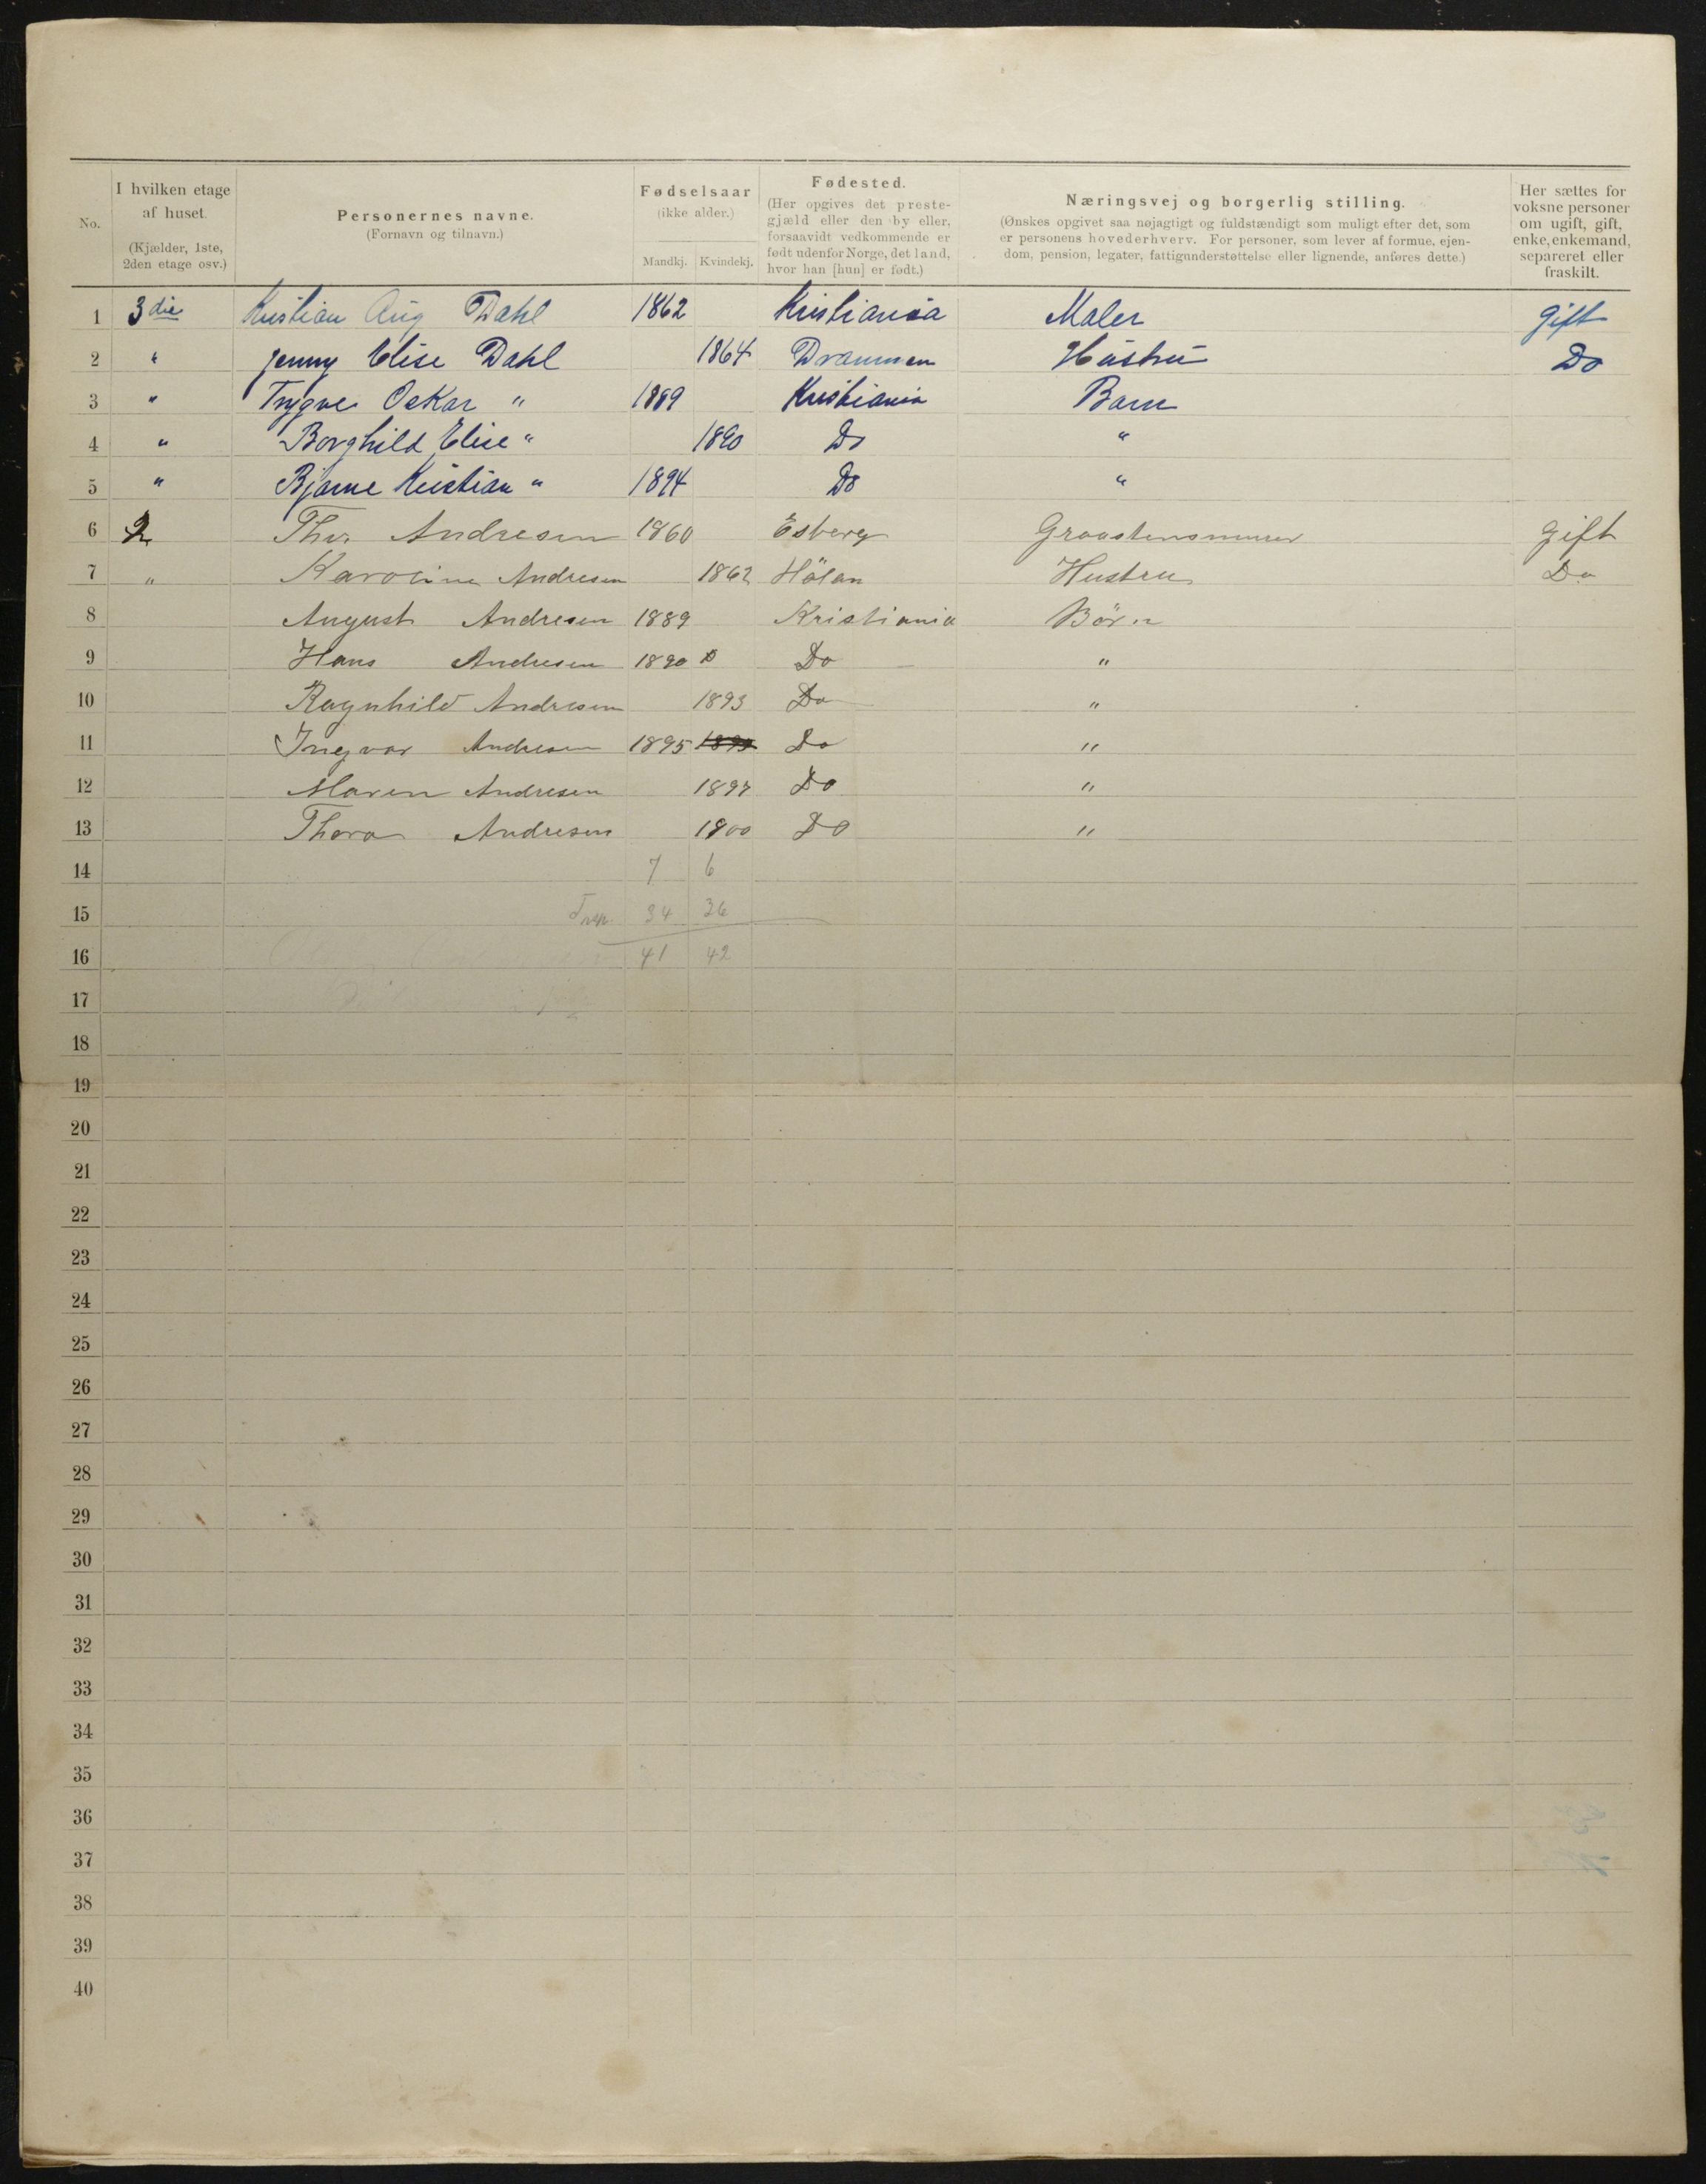 No.
I hvilken etage
af huset.
(Kjælder, 1ste,
2den etage osv.)
Personernes navne.
(Fornavn og tilnavn.)
Fødselsaar
(ikke alder.)
Mandkj. Kvindekj.
Fødested.
(Her opgives det preste-
gjæld eller den by eller,
forsaavidt vedkommende er
født udenfor Norge, det land,
hvor han [hun] er født.)
Næringsvej og borgerlig stilling.
(Ønskes opgivet saa nøjagtigt og fuldstændigt som muligt efter det, som
er personens hovederhverv. For personer, som lever af formue, ejen-
dom, pension, legater, fattigunderstøttelse eller lignende, anføres dette.)
Her sættes for
voksne personer
om ugift, gift,
enke, enkemand,
separeret eller
fraskilt.
1 3die Kristian Aug Dahl 1862 Kristiania Maler gift
2 " Jenny Elise Dahl 1864 Drammen Hustru Do
3 " Trygve Oskar " 1889 Kristiania Barn
4 " Borghild Elise " 1890 Do "
5 " Bjarne Kristian " 1894 Do "
6 2 Thv. Andresen 1860 Esberg Graastensmurer gift
7 " Karoline Andresen 1862 Hölan Hustru Do
8 August Andresen 1889 Kristiania Börn
9 Hans Andresen 1890 Do "
10 Ragnhild Andresen 1893 Do "
11 Ingvar Andresen 1895 Do "
12 Maren Andresen 1897 Do "
13 Thora Andresen 1900 Do "
14 7 6
15 34 36
16 41 42
17
18
19
20
21
22
23
24
25
26
27
28
29
30
31
32
33
34
35
36
37
38
39
40